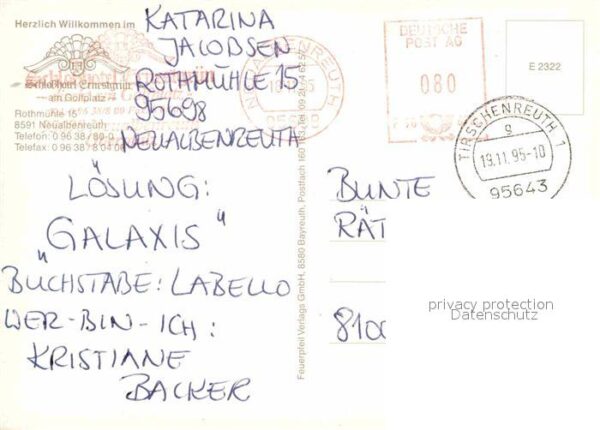 Herzlich Willkommen im
Schloßhotel Ernsthof
am Golfplatz
Rothmühle 15
8591 Neualbenreuth
Telefon: 0 96 38 / 80-0
Telefax: 0 96 38 / 8 04 06
KATARINA
JACOBSEN
ROTHMÜHLE 15
95698
NEUALBENREUTH
LÖSUNG:
"GALAXIS"
BUCHSTABE: LABELLO
WER-BIN-ICH:
KRISTIANE
BACKER
Feuerpfeil Verlags GmbH, 8580 Bayreuth, Postfach
DEUTSCHE
POST AG
080
E 2322
TIRSCHENREUTH 1
g
19.11.95-10
95643
BUNTE
RÄT
8100
privacy protection
Datenschutz